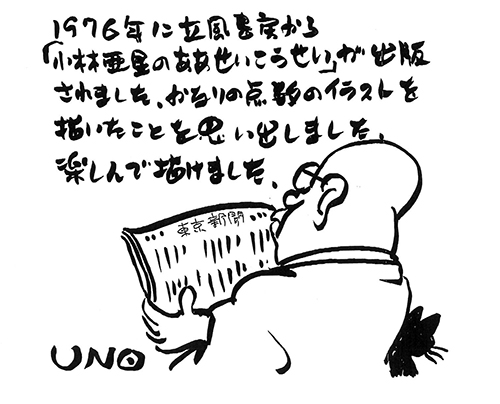 1976年に立風書房から
「小林亜星のああせいこうせい」が出版
されました、かなりの点数のイラストを
描いたことを思い出しました、
楽しんで描けました、
東京新聞
UNO